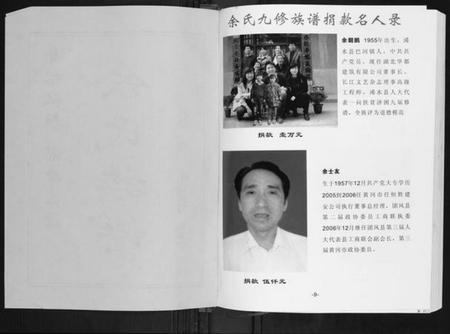 余氏九修族谱捐款名人录
余朝鹏 1955年出生,浠
水县巴河镇人,中共共
产党员,现任湖北华都
建筑有限公司董事长,
长江文艺杂志理事高级
工程师,浠水县人大代
表一向扶贫济困九届修
谱,全族评为道德模高
捐款 壹万元
余士友
生于1957年12月共产党大专学历
2005到2006任黄冈市任恒辉建
安公司执行董事总经理,团风县
第二届政协委员工商联执委
2006年12月继任团风县第三届人
大代表县工商联会副会长,第三
届黄冈市政协委员。
捐款 伍仟元
-9-